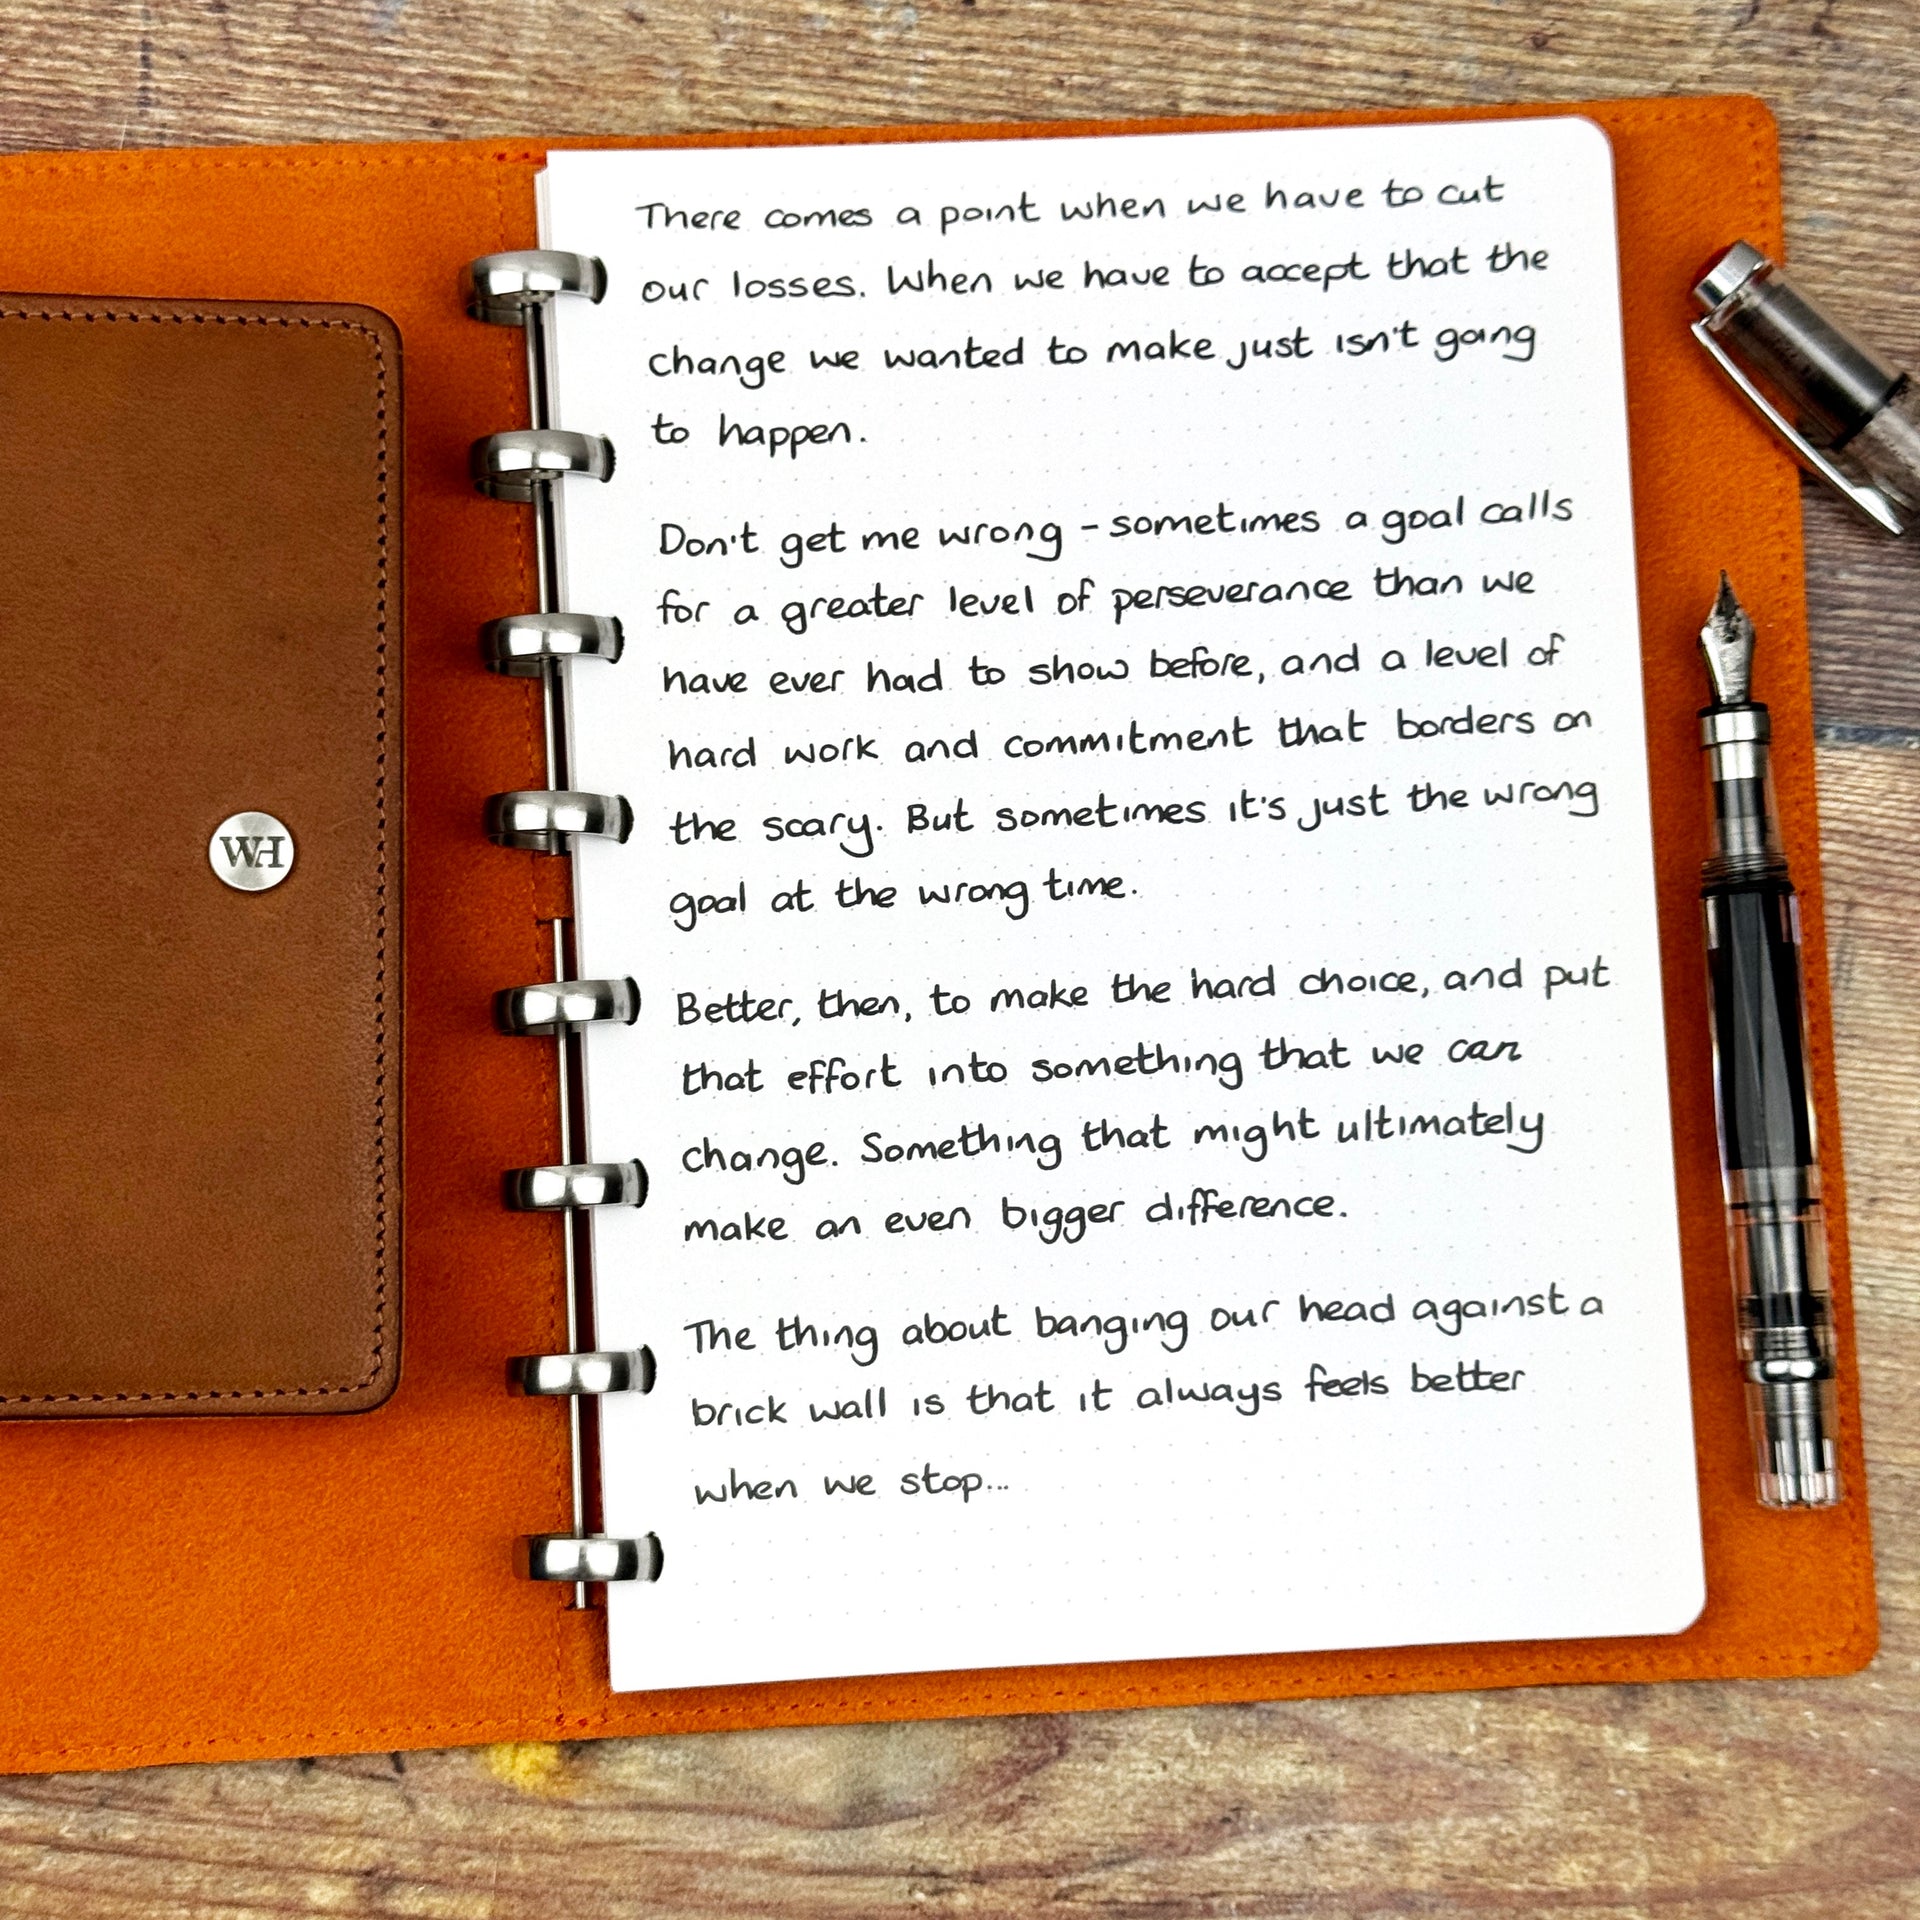 WH
There comes a point when we have to cut
our losses. When we have to accept that the
change we wanted to make just isn't going
to happen.
Don't get me wrong - sometimes a goal calls
for a greater level of perseverance than we
have ever had to show before, and a level of
hard work and commitment that borders on
the scary. But sometimes it's just the wrong
goal at the wrong time.
Better, then, to make the hard choice, and put
that effort into something that we can
change. Something that might ultimately
make an even bigger difference.
The thing about banging our head against a
brick wall is that it always feels better
when we stop...